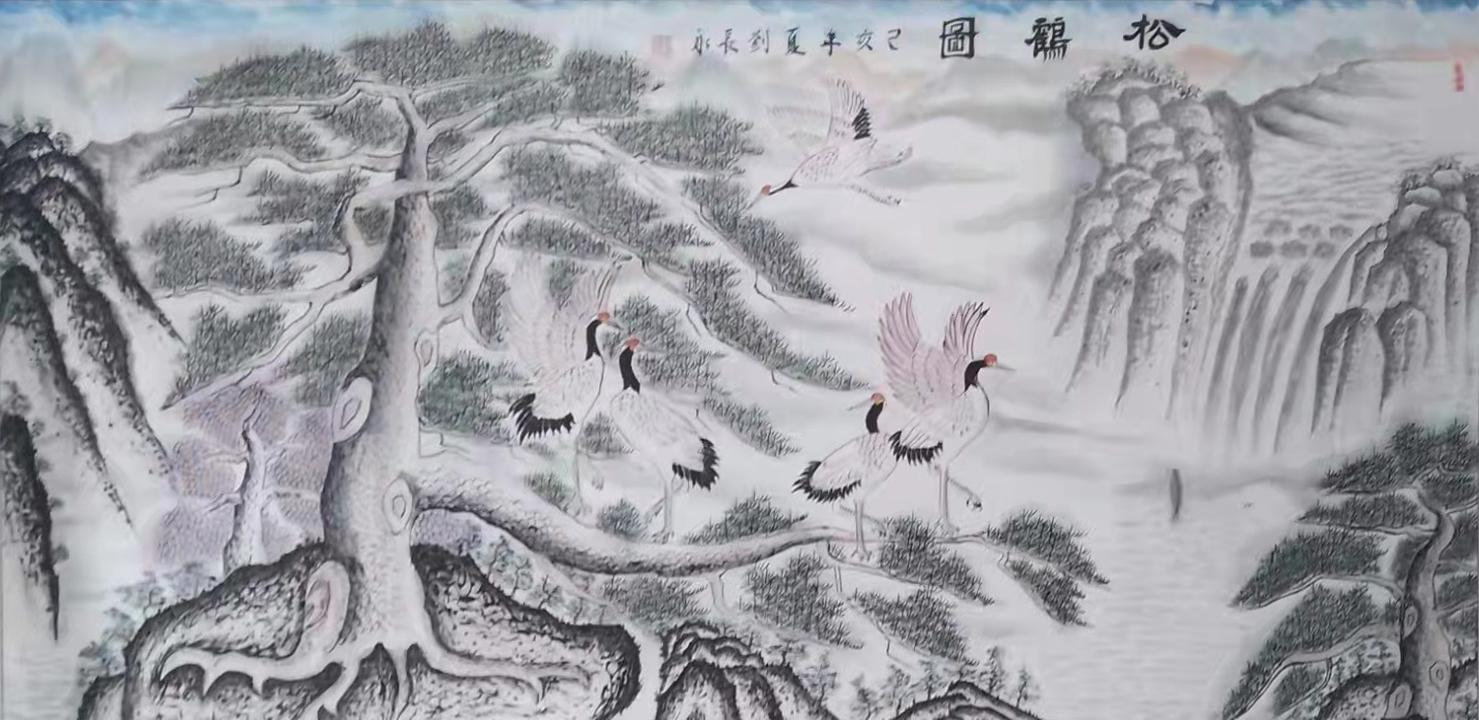 松鶴圖
己亥年夏刘長永